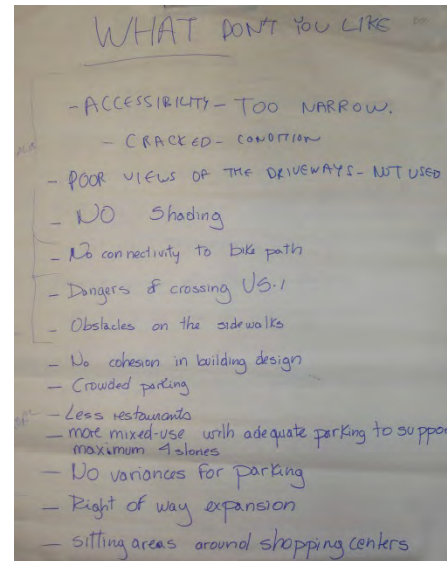 WHAT DON'T YOU LIKE
- ACCESSIBILITY - TOO NARROW.
- CRACKED - CONDITION
- POOR VIEWS OF THE DRIVEWAYS - NOT USED
- NO Shading
- No connectivity to bike path
- Dangers of crossing US.1
- Obstacles on the sidewalks
- No cohesion in building design
- Crowded parking
- Less restaurants
- more mixed-use with adequate parking to suppo
maximum 4 stories
- No variances for parking
- Right of way expansion
- sitting areas around shopping centers